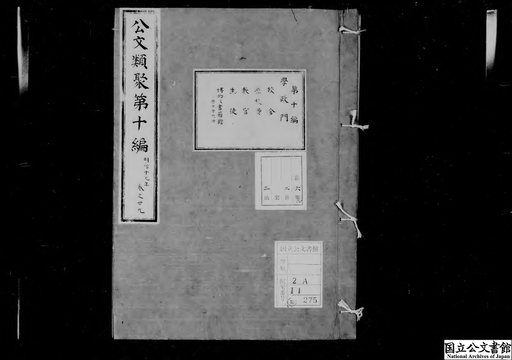 公文類聚第十編 明治十九年 巻之廿九
第十編
學政門
校舎
教官
生徒
博物書籍館
国立公文書館
2A
11
275
国立公文書館
National Archives of Japan